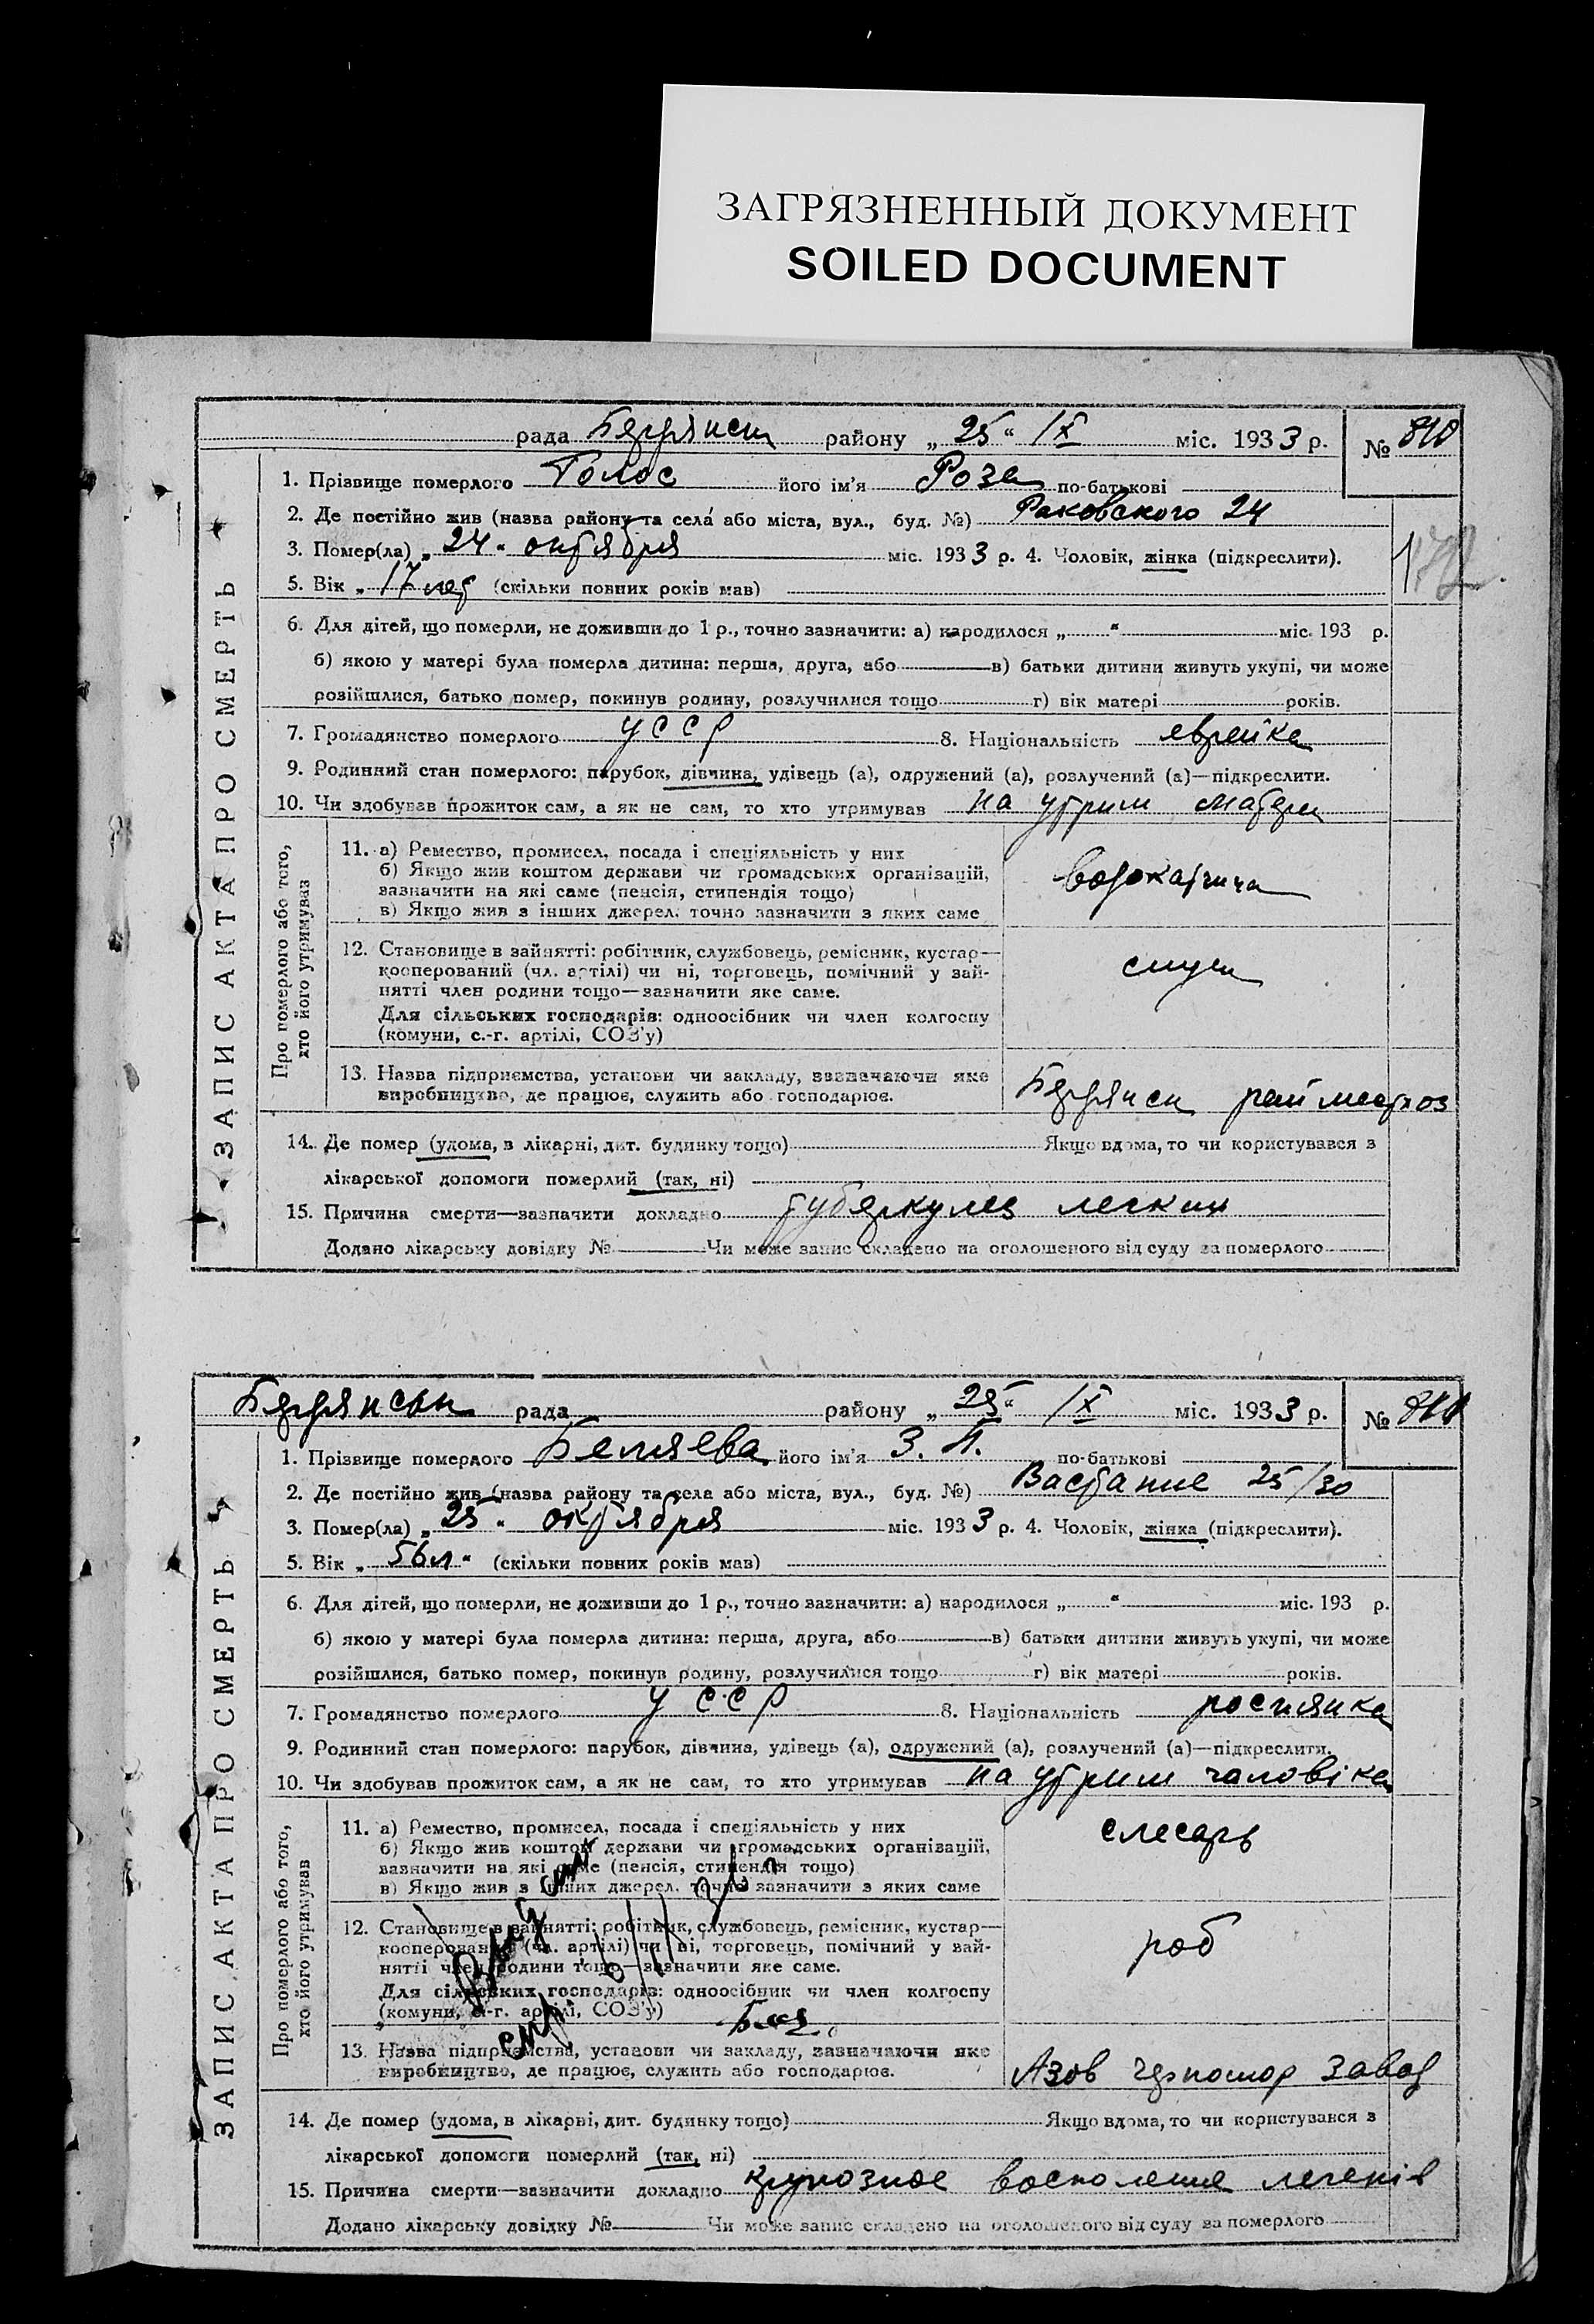 ЗАГРЯЗНЕННЫЙ ДОКУМЕНТ
SOILED DOCUMENT
рада Бердянськ району „ 25 “ IX міс. 1933 р. №
1. Прізвище померлого Голос його ім’я Роза по-батькові
2. Де постійно жив (назва району та села або міста, вул., буд. №) Раковского 24
3. Помер(ла) „ 24 “ октября міс. 1933 р. 4. Чоловік, жінка (підкреслити).
5. Вік „ 17 лет (скільки повних років мав)
6. Для дітей, що померли, не доживши до 1 р., точно зазначити: а) народилося „ “ міс. 193 р.
б) якою у матері була померла дитина: перша, друга, або в) батьки дитини живуть укупі, чи може
розійшлися, батько помер, покинув родину, розлучилися тощо г) вік матері років.
7. Громадянство померлого УССР 8. Національність еврейка
9. Родинний стан померлого: парубок, дівчина, удівець (а), одружений (а), розлучений (а)—підкреслити.
10. Чи здобував прожиток сам, а як не сам, то хто утримував на утрим матери
ЗАПИС АКТА ПРО СМЕРТЬ
Про померлого або того, хто його утримував
11. а) Ремество, промисел, посада і спеціяльність у них
б) Якщо жив коштом держави чи громадських організацій,
зазначити на які саме (пенсія, стипендія тощо)
в) Якщо жив з інших джерел, точно зазначити з яких саме
12. Становище в зайнятті: робітник, службовець, ремісник, кустар—
кооперований (чл. артілі) чи ні, торговець, помічний у зай-
нятті член родини тощо—зазначити яке саме.
Для сільських господарів: одноосібник чи член колгоспу
(комуни, с.-г. артілі, СОЗ’у)
13. Назва підприємства, установи чи закладу, зазначаючи яке
виробництво, де працює, служить або господарює.
Бердянск
14. Де помер (удома, в лікарні, дит. будинку тощо) Якщо вдома, то чи користувався з
лікарської допомоги померлий (так, ні)
15. Причина смерти—зазначити докладно туберкулез легких
Додано лікарську довідку № Чи може запис складено на оголошеного від суду за померлого
Бердянськ рада району „ 25 “ IX міс. 1933 р. №
1. Прізвище померлого Беляева його ім’я З. П. по-батькові
2. Де постійно жив (назва району та села або міста, вул., буд. №) 25/30
3. Помер(ла) „ 25 “ октября міс. 1933 р. 4. Чоловік, жінка (підкреслити).
5. Вік „ 56 л “ (скільки повних років мав)
6. Для дітей, що померли, не доживши до 1 р., точно зазначити: а) народилося „ “ міс. 193 р.
б) якою у матері була померла дитина: перша, друга, або в) батьки дитини живуть укупі, чи може
розійшлися, батько помер, покинув родину, розлучилися тощо г) вік матері років.
7. Громадянство померлого УССР 8. Національність росиянка
9. Родинний стан померлого: парубок, дівчина, удівець (а), одружений (а), розлучений (а)—підкреслити.
10. Чи здобував прожиток сам, а як не сам, то хто утримував на утрим чаловіка
ЗАПИС АКТА ПРО СМЕРТЬ
Про померлого або того, хто його утримував
11. а) Ремество, промисел, посада і спеціяльність у них
б) Якщо жив коштом держави чи громадських організацій,
зазначити на які саме (пенсія, стипендія тощо)
в) Якщо жив з інших джерел, точно зазначити з яких саме
слесарь
12. Становище в зайнятті: робітник, службовець, ремісник, кустар—
кооперований (чл. артілі) чи ні, торговець, помічний у зай-
нятті член родини тощо—зазначити яке саме.
Для сільських господарів: одноосібник чи член колгоспу
(комуни, с.-г. артілі, СОЗ’у)
роб
13. Назва підприємства, установи чи закладу, зазначаючи яке
виробництво, де працює, служить або господарює.
Азов Черномор завод
14. Де помер (удома, в лікарні, дит. будинку тощо) Якщо вдома, то чи користувався з
лікарської допомоги померлий (так, ні)
15. Причина смерти—зазначити докладно крупозное восполение легенів
Додано лікарську довідку № Чи може запис складено на оголошеного від суду за померлого